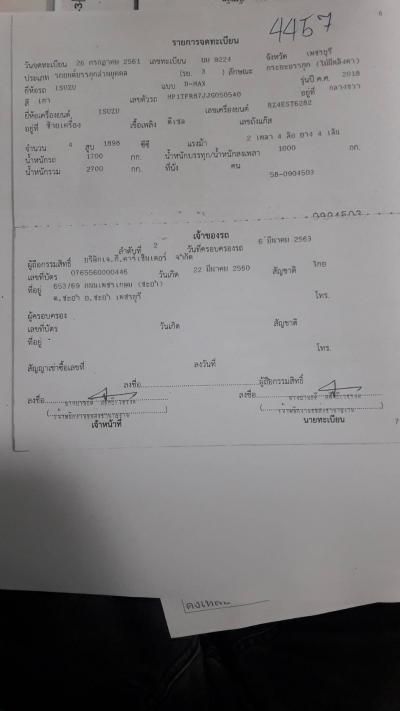 4457
6
รายการจดทะเบียน
วันจดทะเบียน 26 กรกฎาคม 2561 เลขทะเบียน บม 8224 จังหวัด เพชรบุรี
ประเภท รถยนต์บรรทุกส่วนบุคคล (รย. 3 ) ลักษณะ กระบะบรรทุก (ไม่มีหลังคา)
ยี่ห้อรถ ISUZU แบบ D-MAX รุ่นปี ค.ศ. 2018
สี เทา เลขตัวรถ MP1TFR87JJG050540 อยู่ที่ กลางขวา
ยี่ห้อเครื่องยนต์ ISUZU เลขเครื่องยนต์ RZ4EST6282
อยู่ที่ ซ้ายเครื่อง เชื้อเพลิง ดีเซล เลขถังแก๊ส
จำนวน 4 สูบ 1898 ซีซี แรงม้า 2 เพลา 4 ล้อ ยาง 4 เส้น
น้ำหนักรถ 1700 กก. น้ำหนักบรรทุก/น้ำหนักลงเพลา 1000 กก.
น้ำหนักรวม 2700 กก. ที่นั่ง คน
58-0904503
เจ้าของรถ
ลำดับที่ 2 วันที่ครอบครองรถ 6 มีนาคม 2563
ผู้ถือกรรมสิทธิ์ บริษัทเจ.ที.คาร์เซ็นเตอร์ จำกัด
เลขที่บัตร 0765560000446 วันเกิด 22 มีนาคม 2560 สัญชาติ ไทย
ที่อยู่ 653/69 ถนนเพชรเกษม (ชะอำ)
ต.ชะอำ อ.ชะอำ เพชรบุรี โทร.
ผู้ครอบครอง
เลขที่บัตร วันเกิด สัญชาติ
ที่อยู่
โทร.
สัญญาเช่าซื้อเลขที่ ลงวันที่
ลงชื่อ ผู้ถือกรรมสิทธิ์
ลงชื่อ ลงชื่อ
เจ้าหน้าที่ นายทะเบียน
7